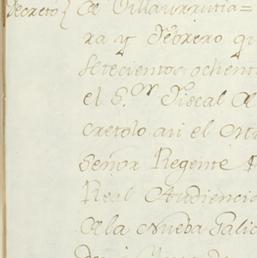 Decreto{ de Villaurrutia=
ra y Febrero qu
setecientos ochent
el S.or Fiscal de
cretolo asi el
Señor Regente
Real Audiencia
de la Nueba Galic